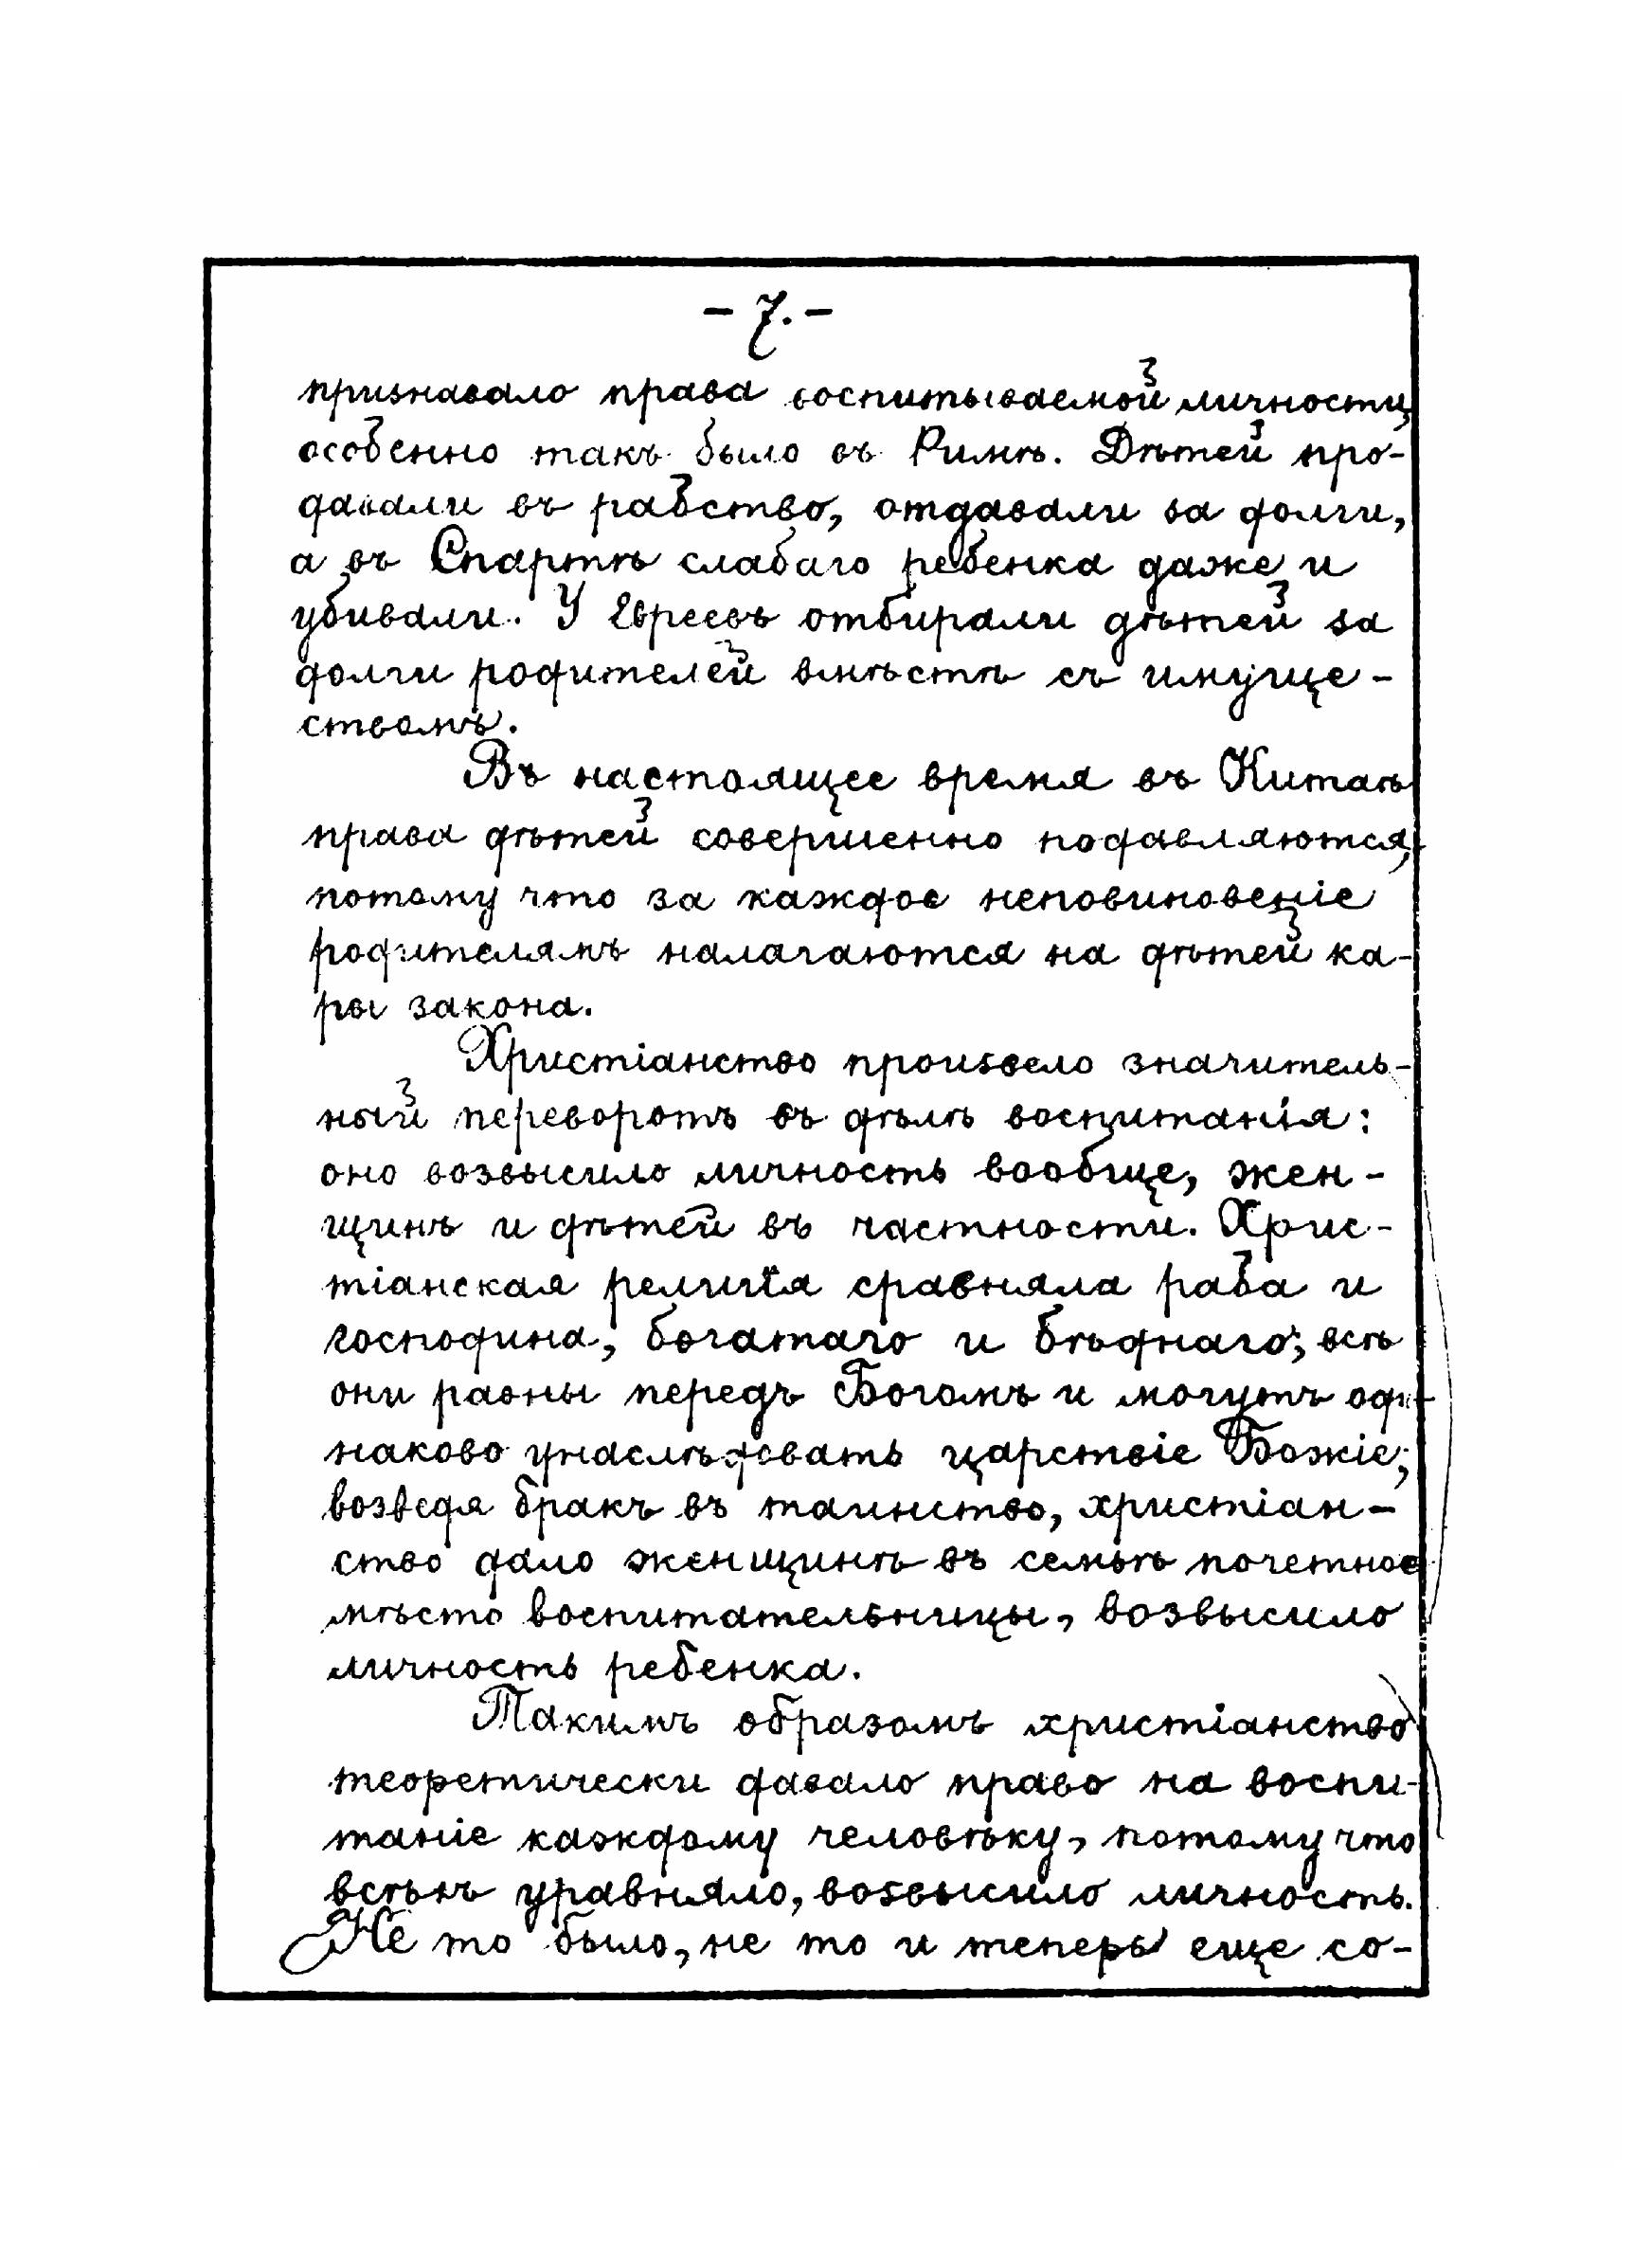 - 7. -
признавало права воспитываемой личности,
особенно такъ было въ Римѣ. Дѣтей про-
давали въ рабство, отдавали за долги,
а въ Спартѣ слабаго ребенка даже и
убивали. У Евреевъ отбирали дѣтей за
долги родителей вмѣстѣ съ имуще-
ствомъ.
Въ настоящее время въ Китаѣ
права дѣтей совершенно подавляются,
потому что за каждое неповиновеніе
родителямъ налагаются на дѣтей ка-
ры закона.
Христіанство произвело значитель-
ный переворотъ въ дѣлѣ воспитанія:
оно возвысило личность вообще, жен-
щинъ и дѣтей въ частности. Хрис-
тіанская религія сравняла раба и
господина, богатаго и бѣднаго; всѣ
они равны передъ Богомъ и могутъ оди-
наково унаслѣдовать царствіе Божіе;
возведя бракъ въ таинство, христіан-
ство дало женщинѣ въ семьѣ почетное
мѣсто воспитательницы, возвысило
личность ребенка.
Такимъ образомъ христіанство
теоретически давало право на воспи-
таніе каждому человѣку, потому что
всѣхъ уравняло, возвысило личность.
Не то было, не то и теперь еще со-